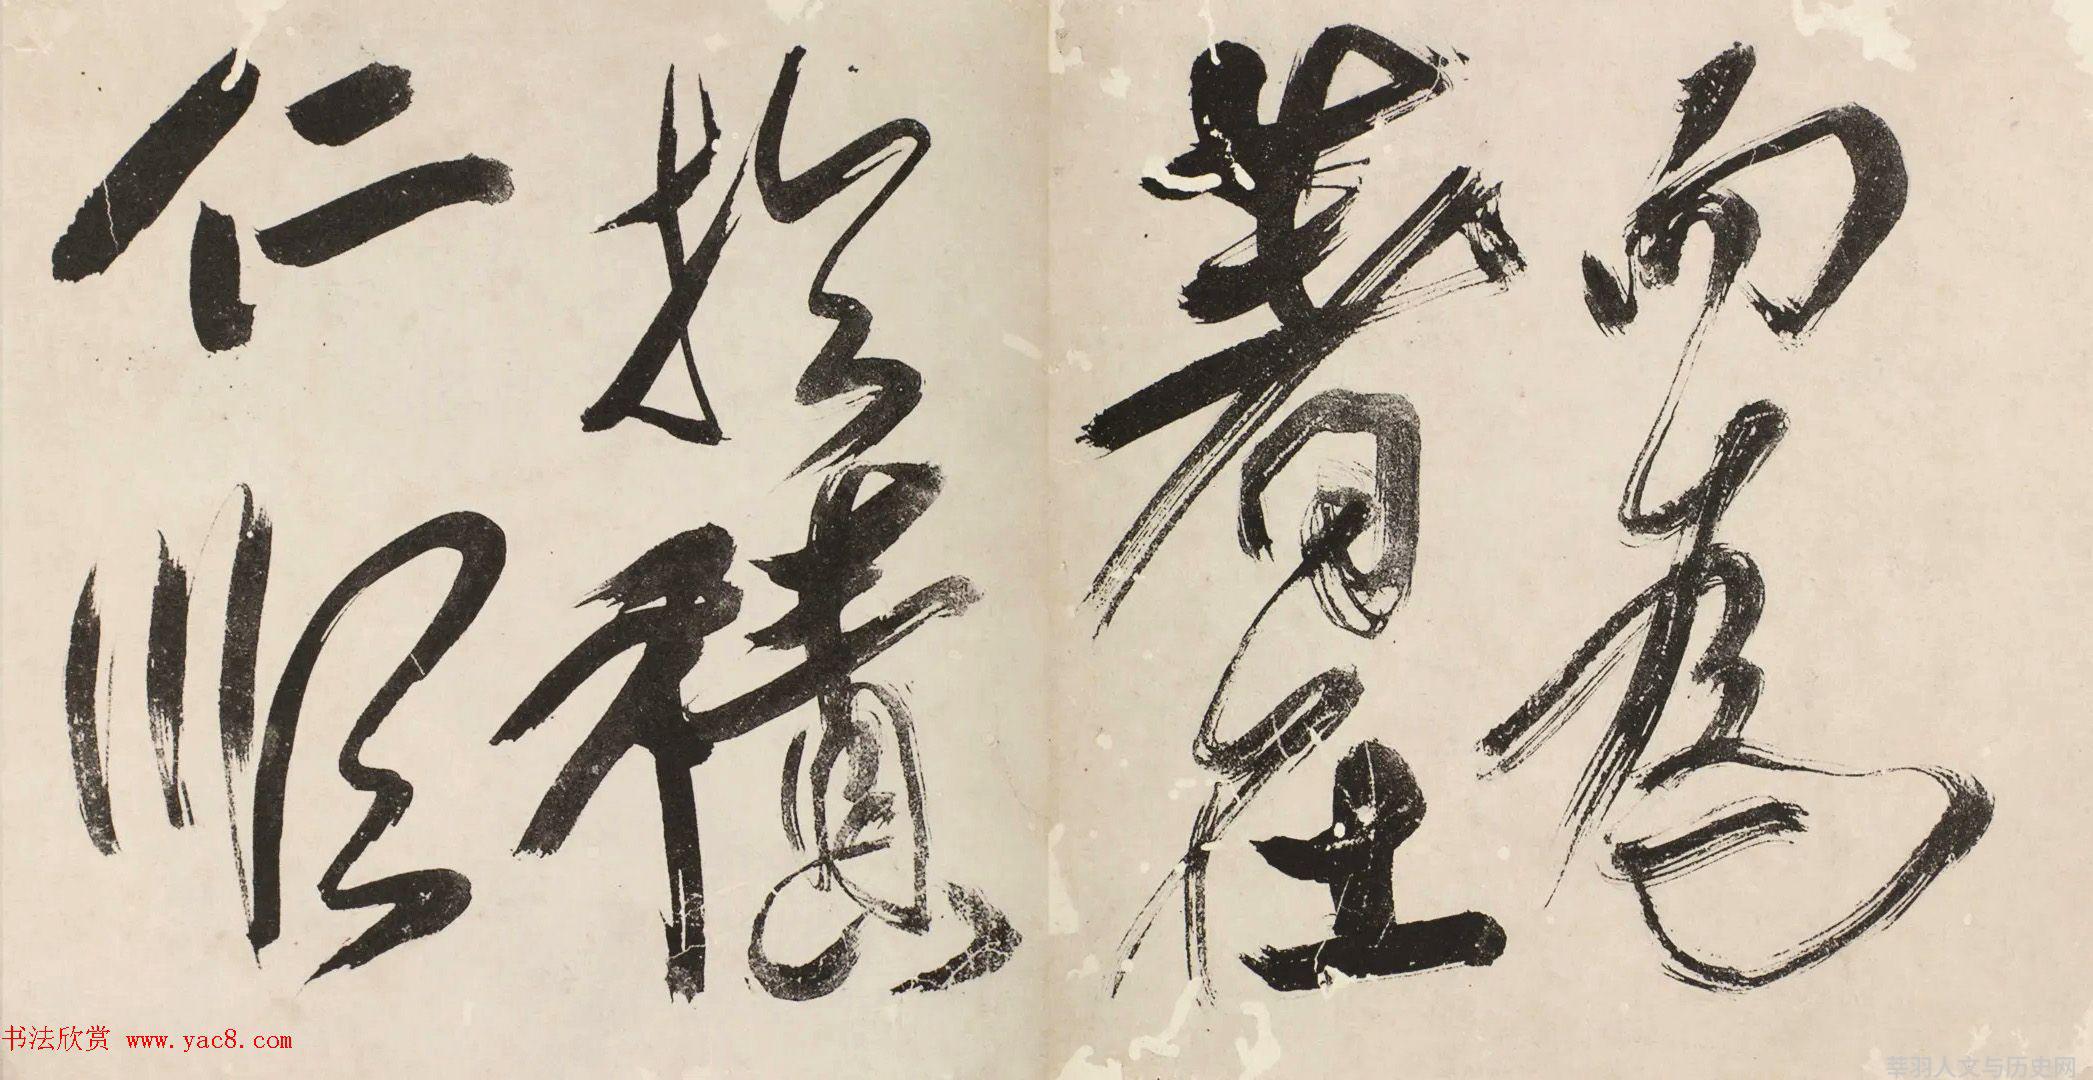 而為
著在
於積
仁順
书法欣赏 www.yac8.com
莘羽人文与历史网